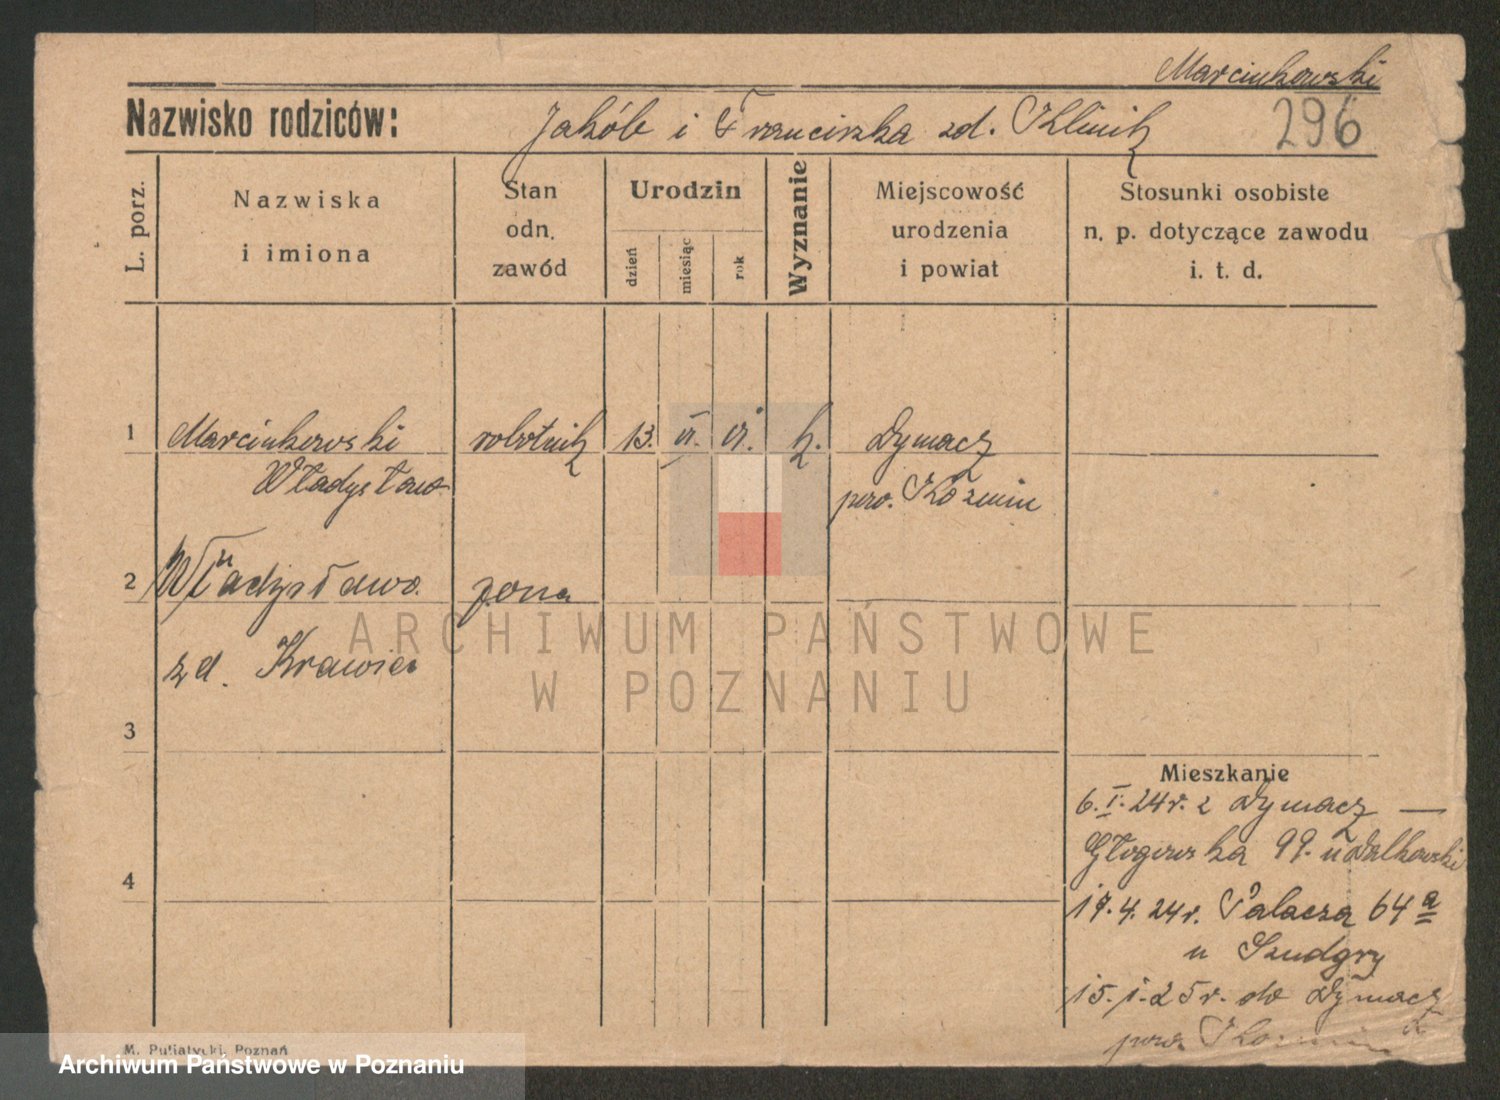 Marcinkowski
Nazwisko rodziców: Jakób i Franciszka zd. Klinik
296
L. porz.
Nazwiska
i imiona
Stan
odn.
zawód
Urodzin
dzień
miesiąc
rok
Wyznanie
Miejscowość
urodzenia
i powiat
Stosunki osobiste
n. p. dotyczące zawodu
i. t. d.
1 Marcinkowski robotnik 13. VI. k. Dymacz
Władysław pow. Kozmin
2 Władysława żona
zd. Krawiec
3
Mieszkanie
6.I.24r. z Dymacz —
Głogowska 99. u
4
17.4.24r. Palacza 64a
u
15.1.25r. do Dymacz
pow. Kozmin
M. Putiatycki, Poznań
ARCHIWUM PAŃSTWOWE
W POZNANIU
Archiwum Państwowe w Poznaniu